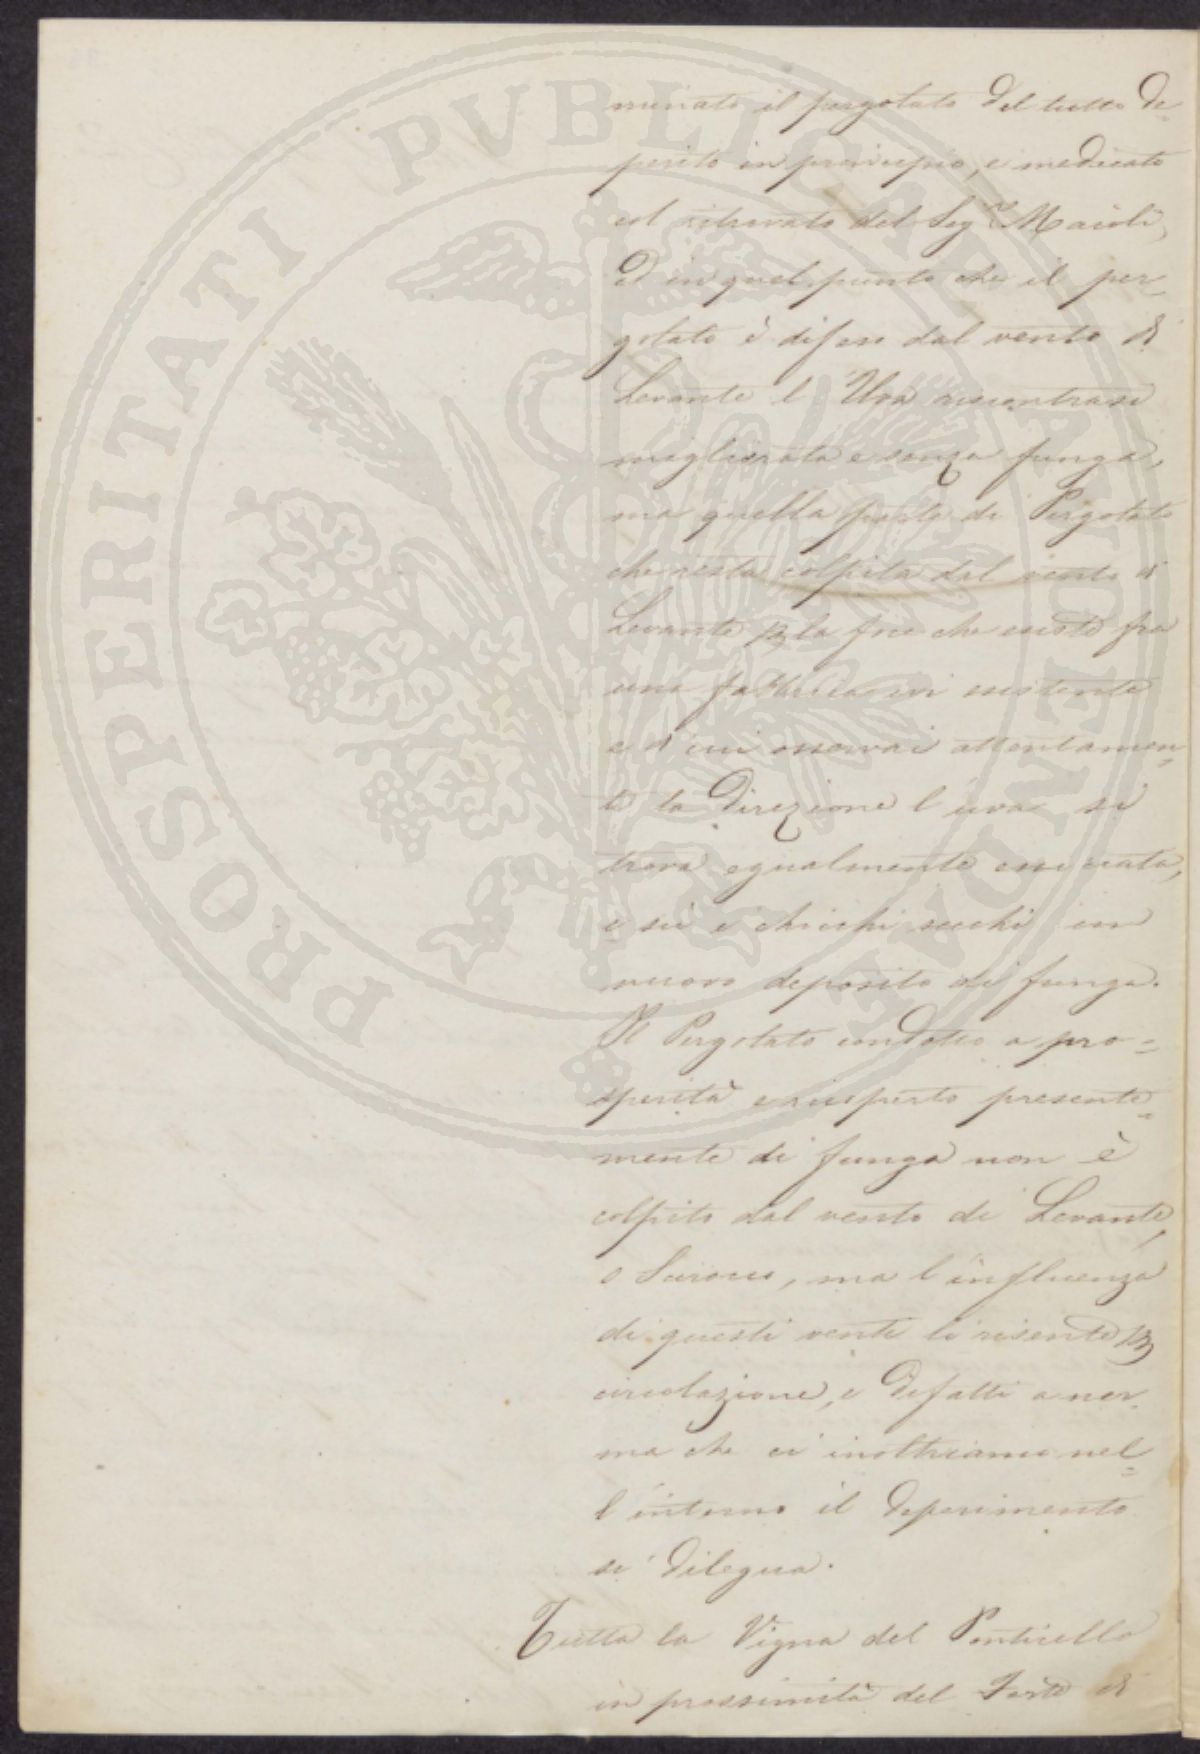 PROSPERITATI PVBLICAE AVGENDAE
minato il pergolato del tutto de=
perito in principio, e medicato
col ritrovato del Sig.r Maioli,
ed in quel punto che il per=
golato è difeso dal vento di
Levante l'Uva riscontrasi
migliorata e senza funga,
ma quella parte di Pergolato
che resta colpita dal vento di
Levante p la foce che esiste fra
una fabbrica ivi esistente
e d'cui osservai attentamen=
te la direzione l'uva si
trova egualmente essicata,
e sù i chicchi secchi un
nuovo deposito di funga.
Il Pergolato condotto a pro=
sperità e risperto presente=
mente di funga non è
colpito dal vento di Levante,
o Scirocco, ma l'influenza
di questi venti li risente p
circolazione, e difatti a nor=
ma che ci inoltriamo nel=
l'interno il deperimento
si dilegua.
Tutta la Vigna del Ponticello
in prossimità del Forte di